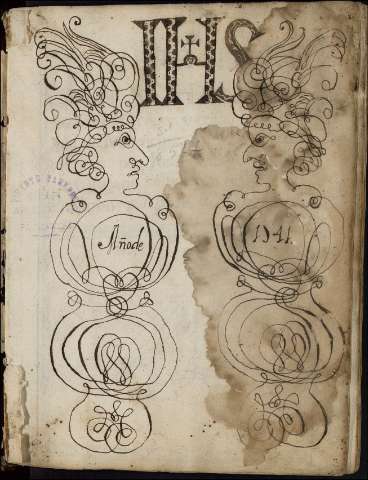 IHS
Año de 1741